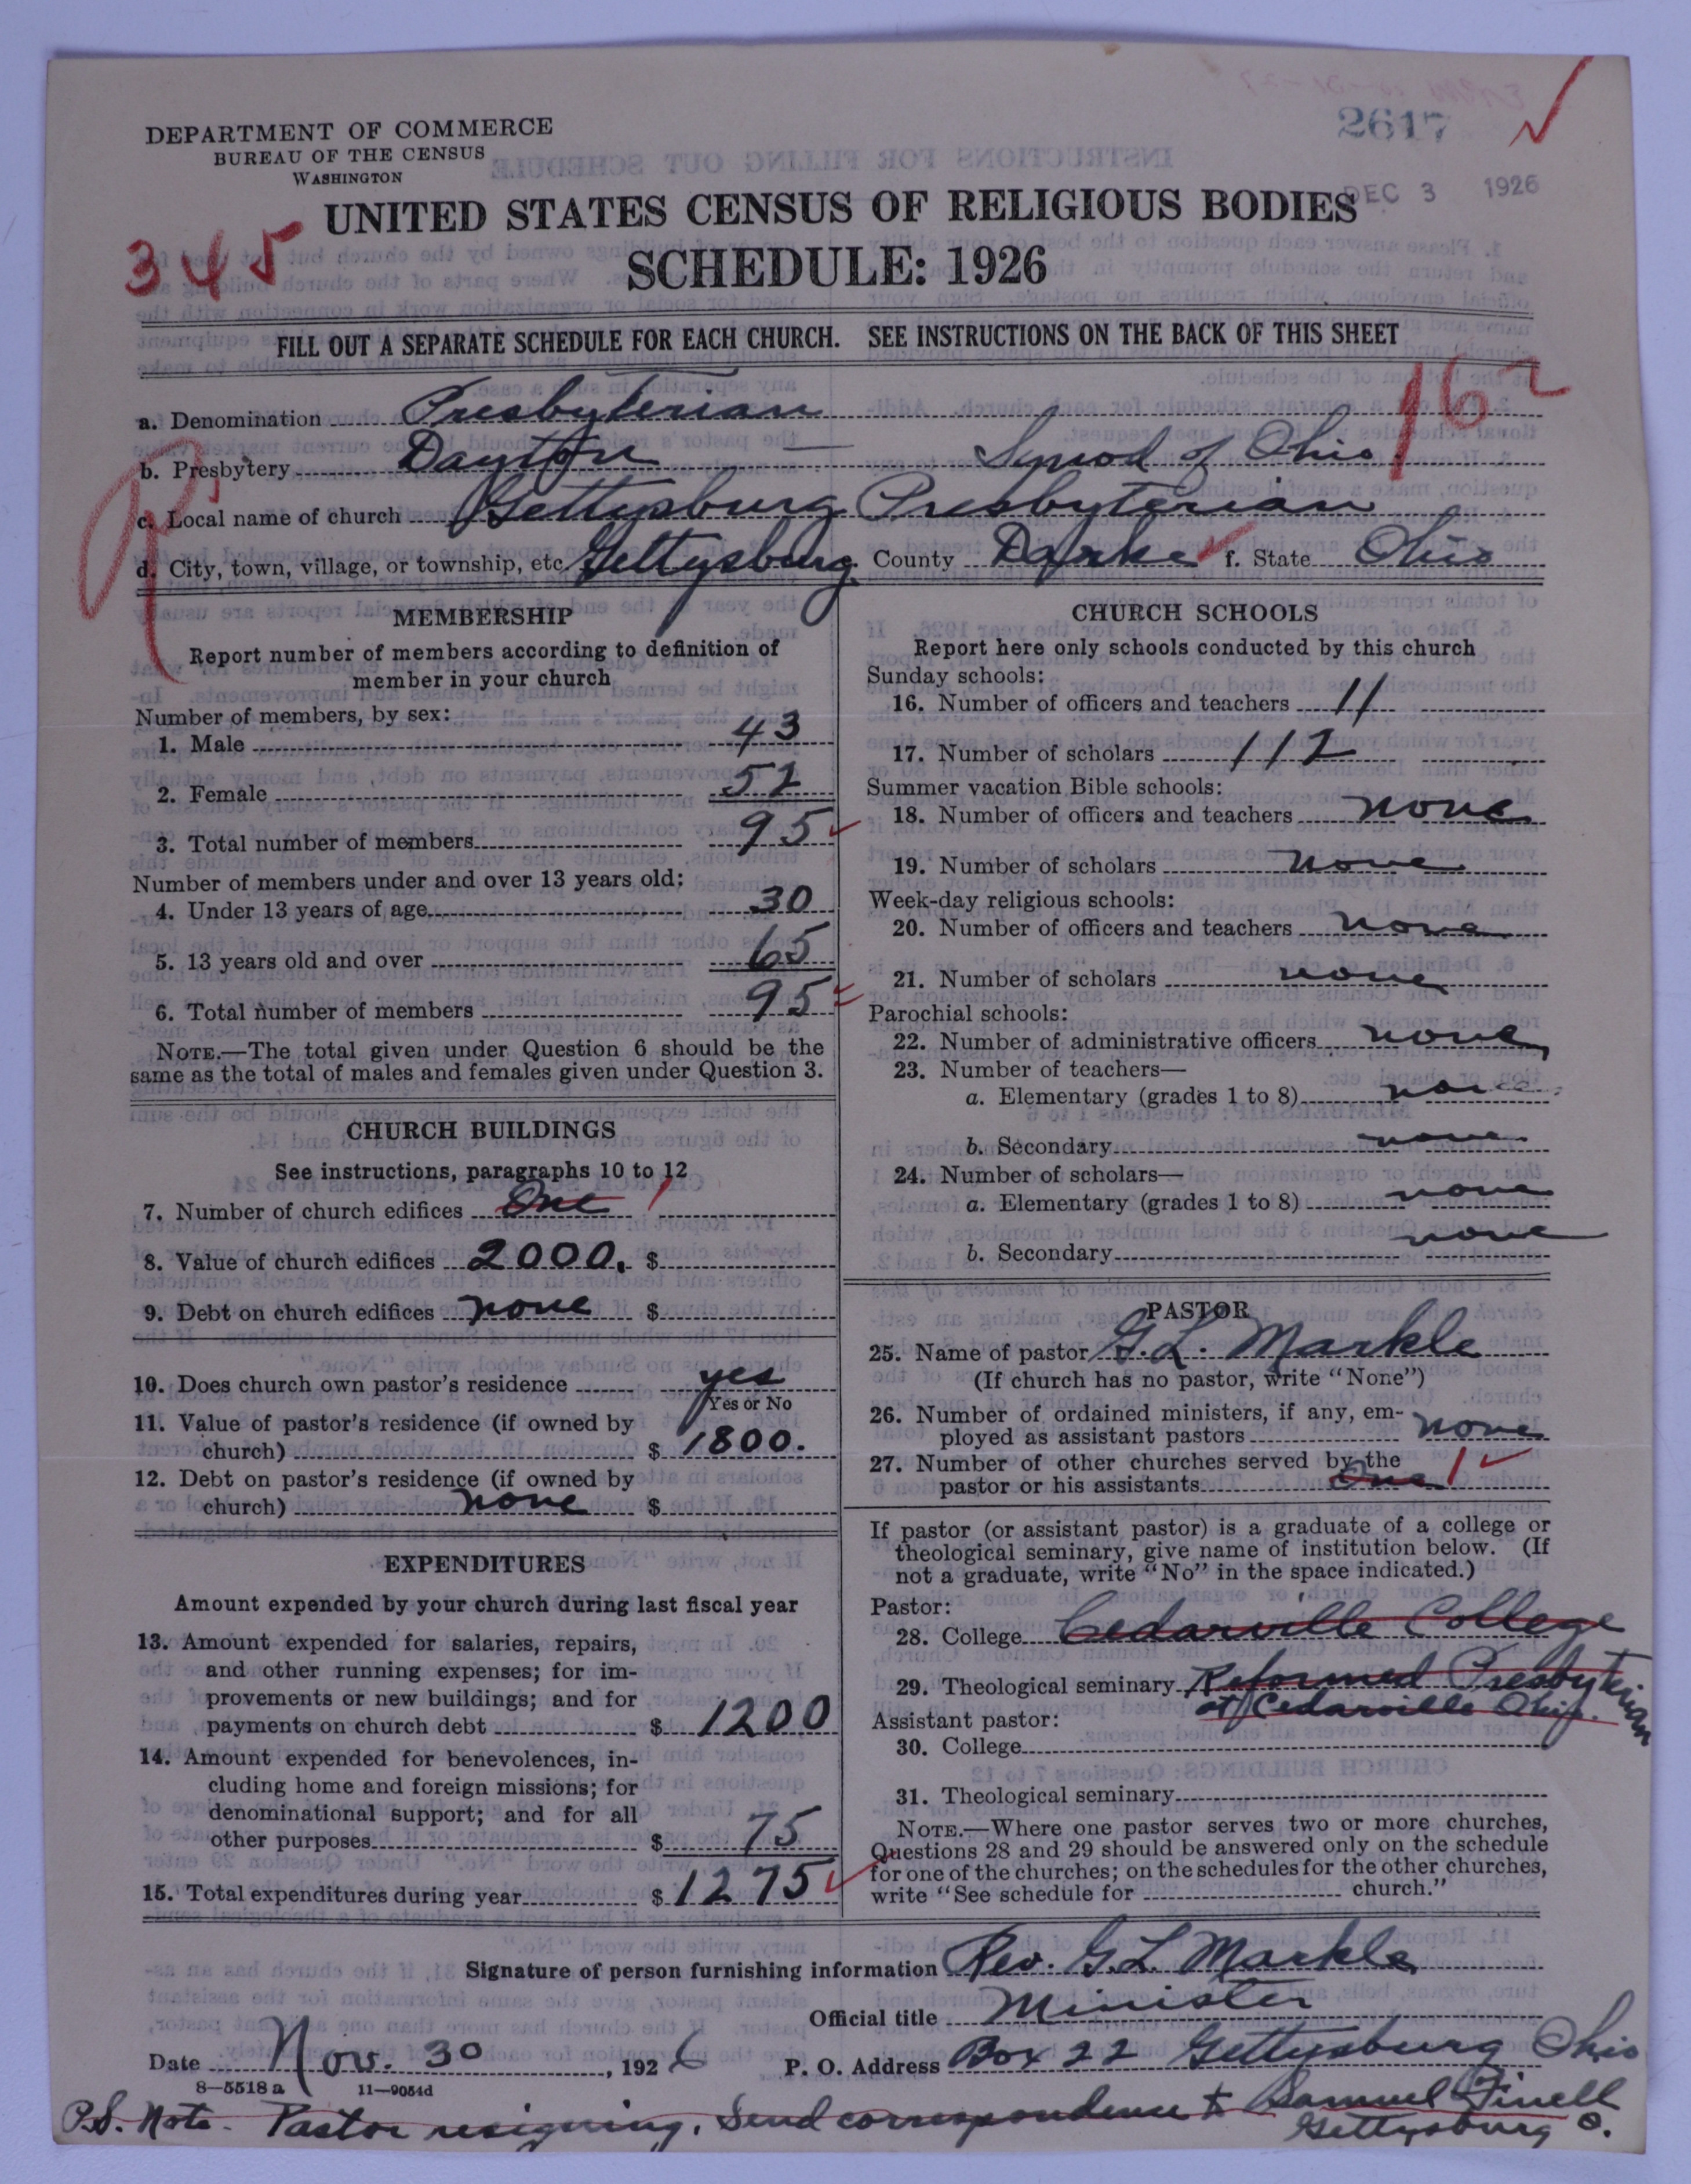 2617
DEPARTMENT OF COMMERCE
BUREAU OF THE CENSUS
WASHINGTON
DEC 3 1926
UNITED STATES CENSUS OF RELIGIOUS BODIES
345
SCHEDULE: 1926
FILL OUT A SEPARATE SCHEDULE FOR EACH CHURCH. SEE INSTRUCTIONS ON THE BACK OF THIS SHEET
162
a. Denomination Presbyterian
b. Presbytery Dayton — Synod of Ohio
c. Local name of church Gettysburg Presbyterian
d. City, town, village, or township, etc Gettysburg County Darke f. State Ohio
MEMBERSHIP
Report number of members according to definition of
member in your church
Number of members, by sex:
1. Male 43
2. Female 52
3. Total number of members 95
Number of members under and over 13 years old:
4. Under 13 years of age 30
5. 13 years old and over 65
6. Total number of members 95
NOTE.—The total given under Question 6 should be the
same as the total of males and females given under Question 3.
CHURCH BUILDINGS
See instructions, paragraphs 10 to 12
7. Number of church edifices One 1
8. Value of church edifices 2000. $
9. Debt on church edifices none $
10. Does church own pastor's residence yes
Yes or No
11. Value of pastor's residence (if owned by
church) $ 1800.
12. Debt on pastor's residence (if owned by
church) none $
EXPENDITURES
Amount expended by your church during last fiscal year
13. Amount expended for salaries, repairs,
and other running expenses; for im-
provements or new buildings; and for
payments on church debt $ 1200
14. Amount expended for benevolences, in-
cluding home and foreign missions; for
denominational support; and for all
other purposes $ 75
15. Total expenditures during year $ 1275
CHURCH SCHOOLS
Report here only schools conducted by this church
Sunday schools:
16. Number of officers and teachers 11
17. Number of scholars 112
Summer vacation Bible schools:
18. Number of officers and teachers none
19. Number of scholars none
Week-day religious schools:
20. Number of officers and teachers none
21. Number of scholars none
Parochial schools:
22. Number of administrative officers none
23. Number of teachers—
a. Elementary (grades 1 to 8) none
b. Secondary none
24. Number of scholars—
a. Elementary (grades 1 to 8) none
b. Secondary none
PASTOR
25. Name of pastor G. L. Markle
(If church has no pastor, write "None")
26. Number of ordained ministers, if any, em-
ployed as assistant pastors none
27. Number of other churches served by the
pastor or his assistants One 1
If pastor (or assistant pastor) is a graduate of a college or
theological seminary, give name of institution below. (If
not a graduate, write "No" in the space indicated.)
Pastor:
28. College Cedarville College
29. Theological seminary Reformed Presbyterian
at Cedarville Ohio.
Assistant pastor:
30. College
31. Theological seminary
NOTE.—Where one pastor serves two or more churches,
Questions 28 and 29 should be answered only on the schedule
for one of the churches; on the schedules for the other churches,
write "See schedule for church."
Signature of person furnishing information Rev. G. L. Markle
Official title Minister
Date Nov. 30, 1926 P. O. Address Box 22 Gettysburg Ohio
8—5518 a 11—9054d
P.S. Note. Pastor resigning. Send correspondence to Samuel Finell
Gettysburg O.